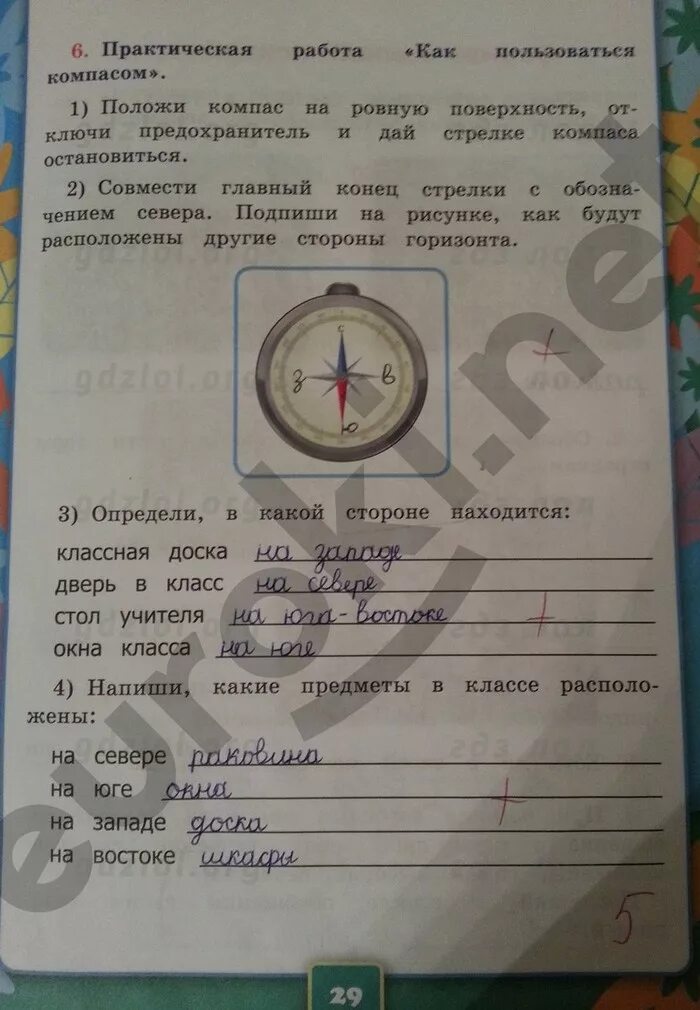 6. Практическая работа «Как пользоваться
компасом».
1) Положи компас на ровную поверхность, от-
ключи предохранитель и дай стрелке компаса
остановиться.
2) Совмести главный конец стрелки с обозна-
чением севера. Подпиши на рисунке, как будут
расположены другие стороны горизонта.
С
З В
Ю
3) Определи, в какой стороне находится:
классная доска на западе
дверь в класс на севере
стол учителя на юга-востоке
окна класса на юге
4) Напиши, какие предметы в классе располо-
жены:
на севере раковина
на юге окна
на западе доска
на востоке шкафы
5
29
euroki.net